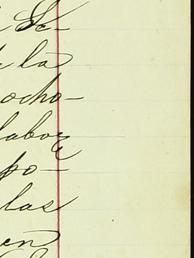 Se-
la
ocho-
labor
po-
las
en